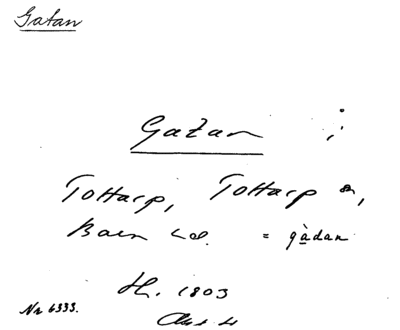 Gatan
Gatan ;
Tottarp, Tottarp sn,
Bara hd. = gàdan
H. 1803
Nr 6333.